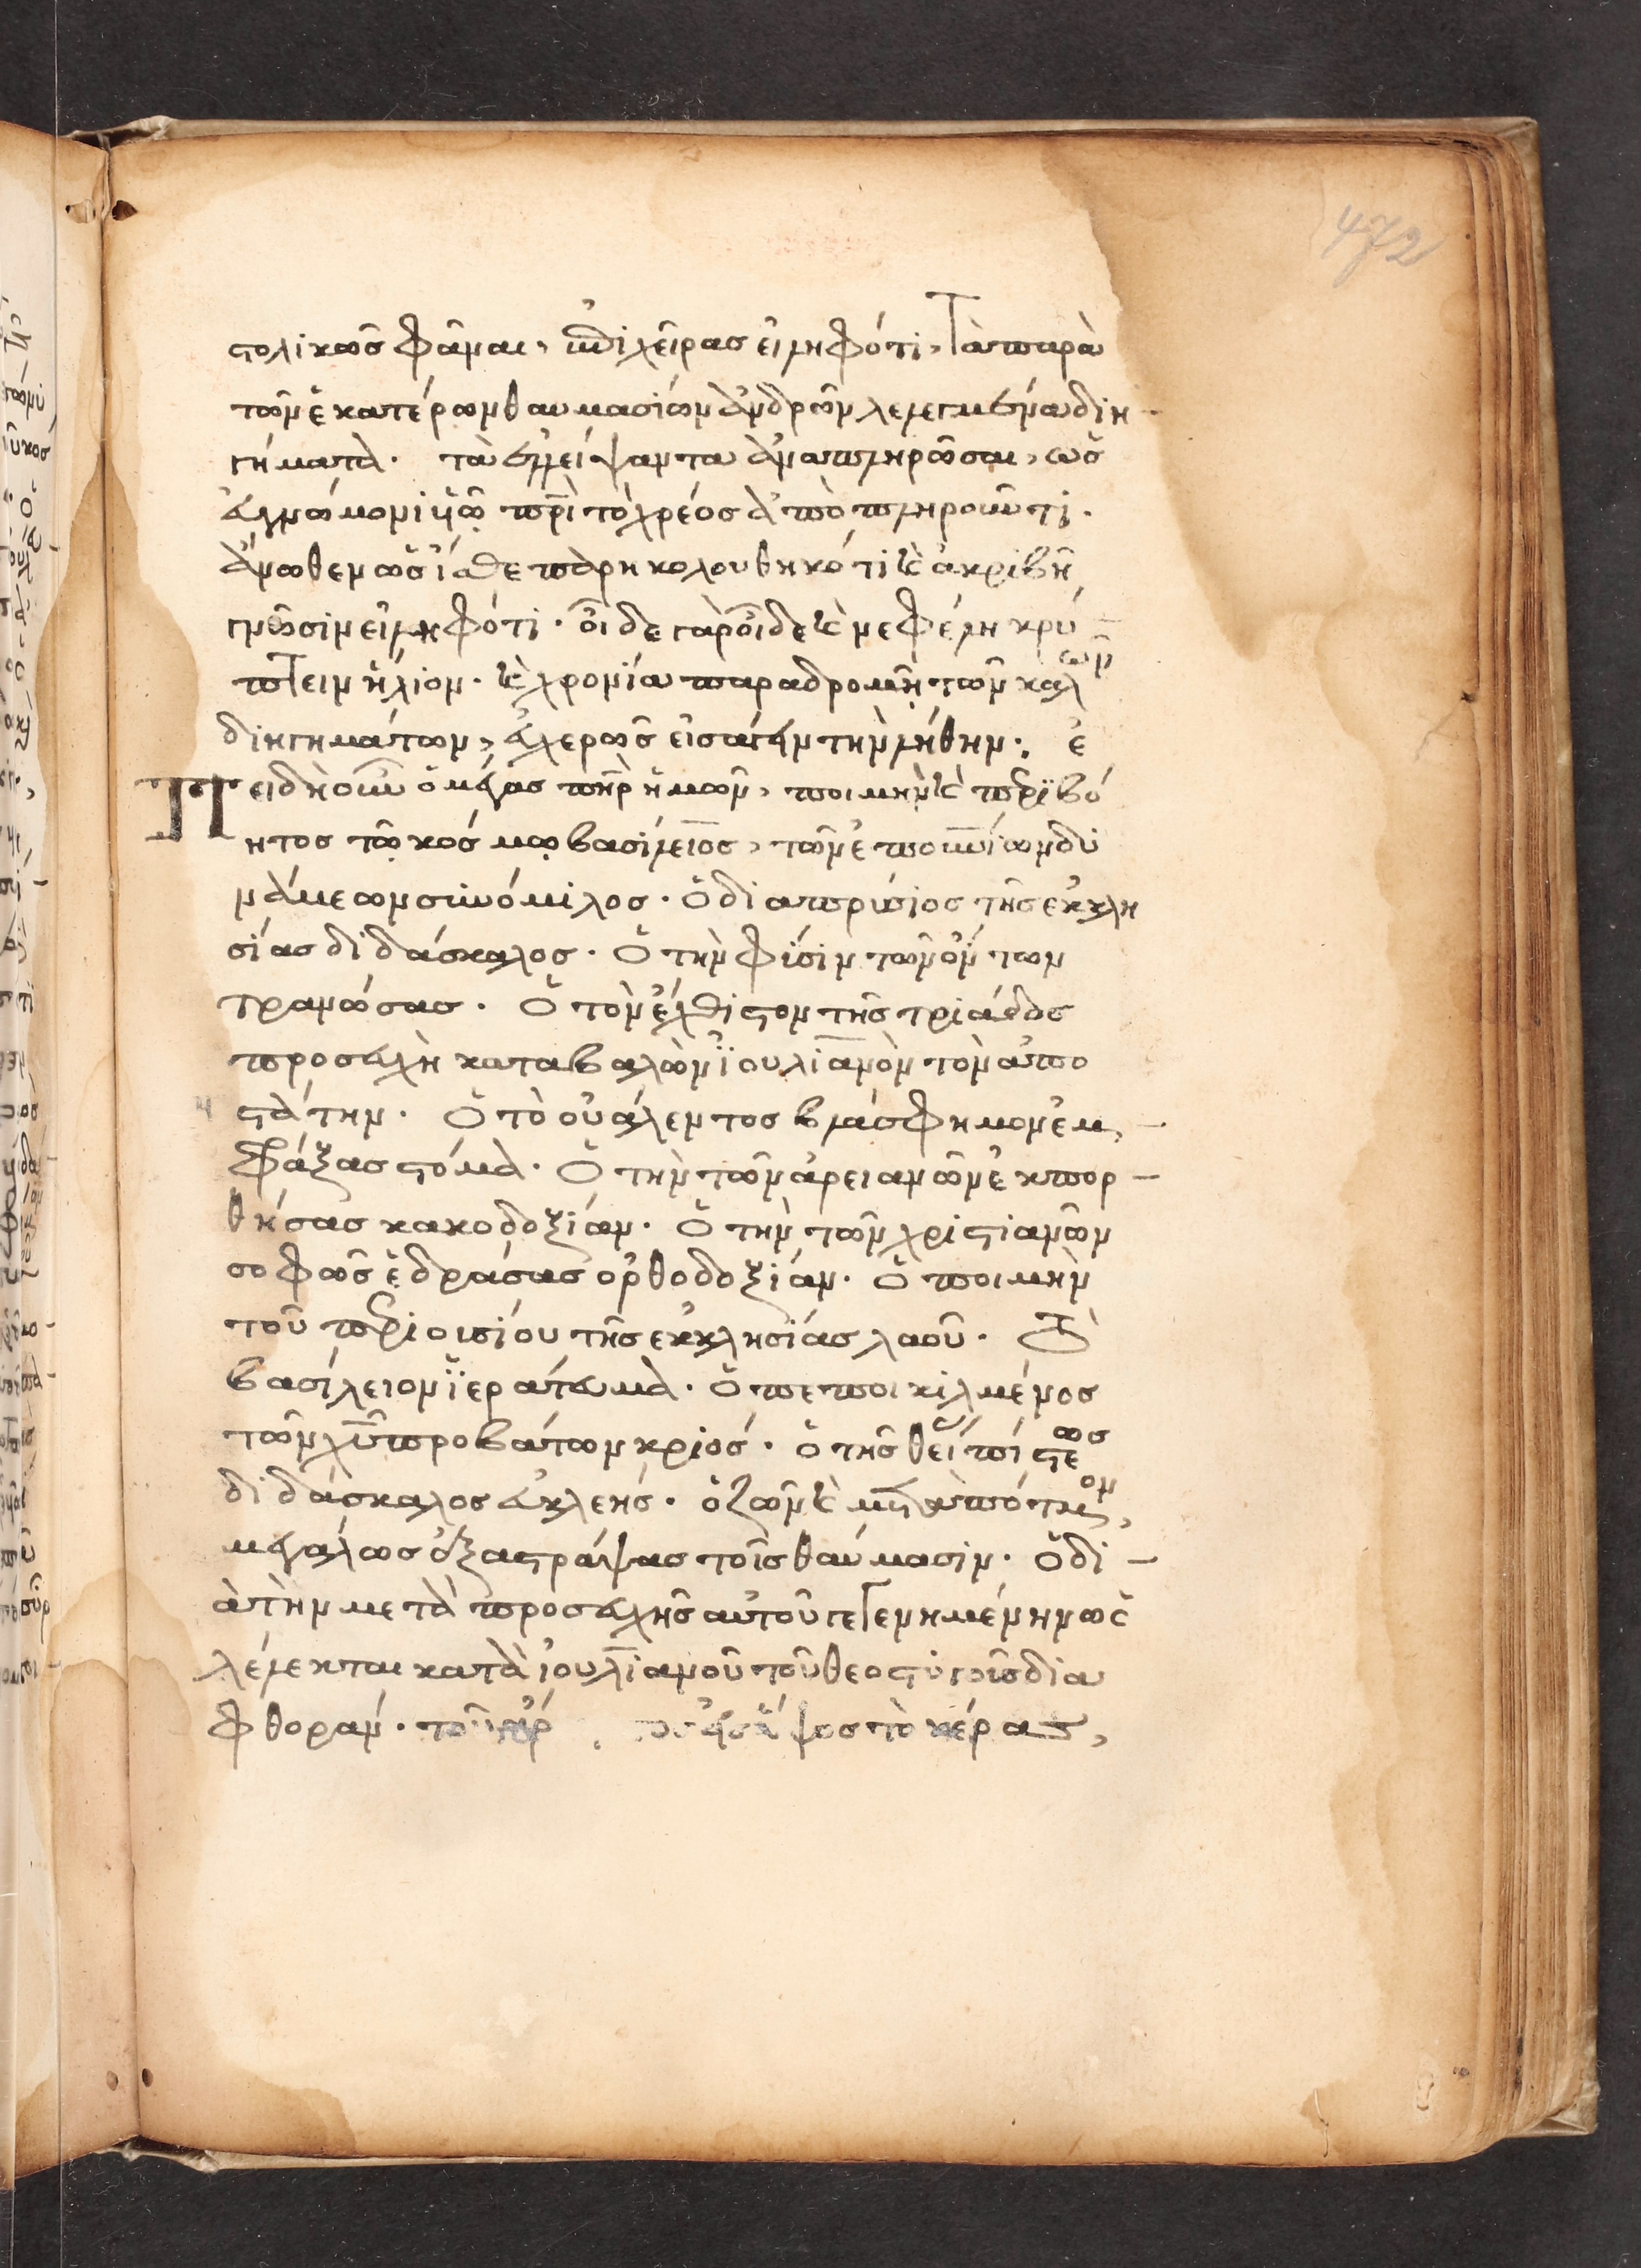 472
στολικῶς φάναι, ἐπὶ χεῖρας εἰληφότι, τὰ παρὰ
τῶν ἑκατέρων θαυμασίων ἀνδρῶν λελεγμένα διη
γήματα. τὰ ἐλλείψαντα ἀναπληρῶσαι, ὡς
εὐγνώμονι υἱῷ πρὶ τὸ χρέος ἀποπληροῦντι.
ἄνωθεν ὡς οἷά τε παρηκολουθηκότι καὶ ἀκριβῆ
γνῶσιν εἰληφότι. οἶδε γὰρ οἶδε καὶ νεφέλη κρύ
πτειν ἥλιον. καὶ χρονία παραδρομὴ τῶν καλῶν
διηγημάτων, εὐχερῶς εἰσάγειν τὴν λήθην. ἐ
Πειδὴ οὖν ὁ μέγας πηρ ἡμῶν, ποιμὴν καὶ περιβό
ητος τῷ κόσμῳ βασίλειος, τῶν ἐπουνίων δυ
νάμεων συνόμιλος. ὁ διαπρύσιος τῆς ἐκκλη
σίας διδάσκαλος. Ὁ τὴν φύσιν τῶν ὄντων
τρανώσας. Ὁ τὸν ἔχθιστον τῆς τριάδος
προσευχῇ καταβαλὼν ἰουλιανὸν τὸν ἀπο
στάτην. Ὁ τὸ οὐάλεντος βλάσφημον ἐμ
φράξας στόμα. Ὁ τὴν τῶν ἀρειανῶν ἐκπορ
θήσας κακοδοξίαν. Ὁ τὴν τῶν χριστιανῶν
σοφῶς ἑδράσας ὀρθοδοξίαν. Ὁ ποιμὴν
τοῦ περιουσίου τῆς ἐκκλησίας λαοῦ. Τὸ
βασίλειον ἱεράτευμα. Ὁ πεποικιλμένος
τῶν χυ προβάτων κριός. ὁ τῆς θείας πίστεως
διδάσκαλος εὐκλεής. ὁ ζῶν καὶ μετὰ πότμον
μεγάλως ἐξαστράψας τοῖς θαύμασιν. Ὁ δι
ὰ τὴν μετὰ προσευχῆς αὐτοῦ γεγενημένην ὡς
λέλεκται κατὰ ἰουλιανοῦ τοῦ θεοστυγοῦς δια
φθοράν. τὸ κέρας,